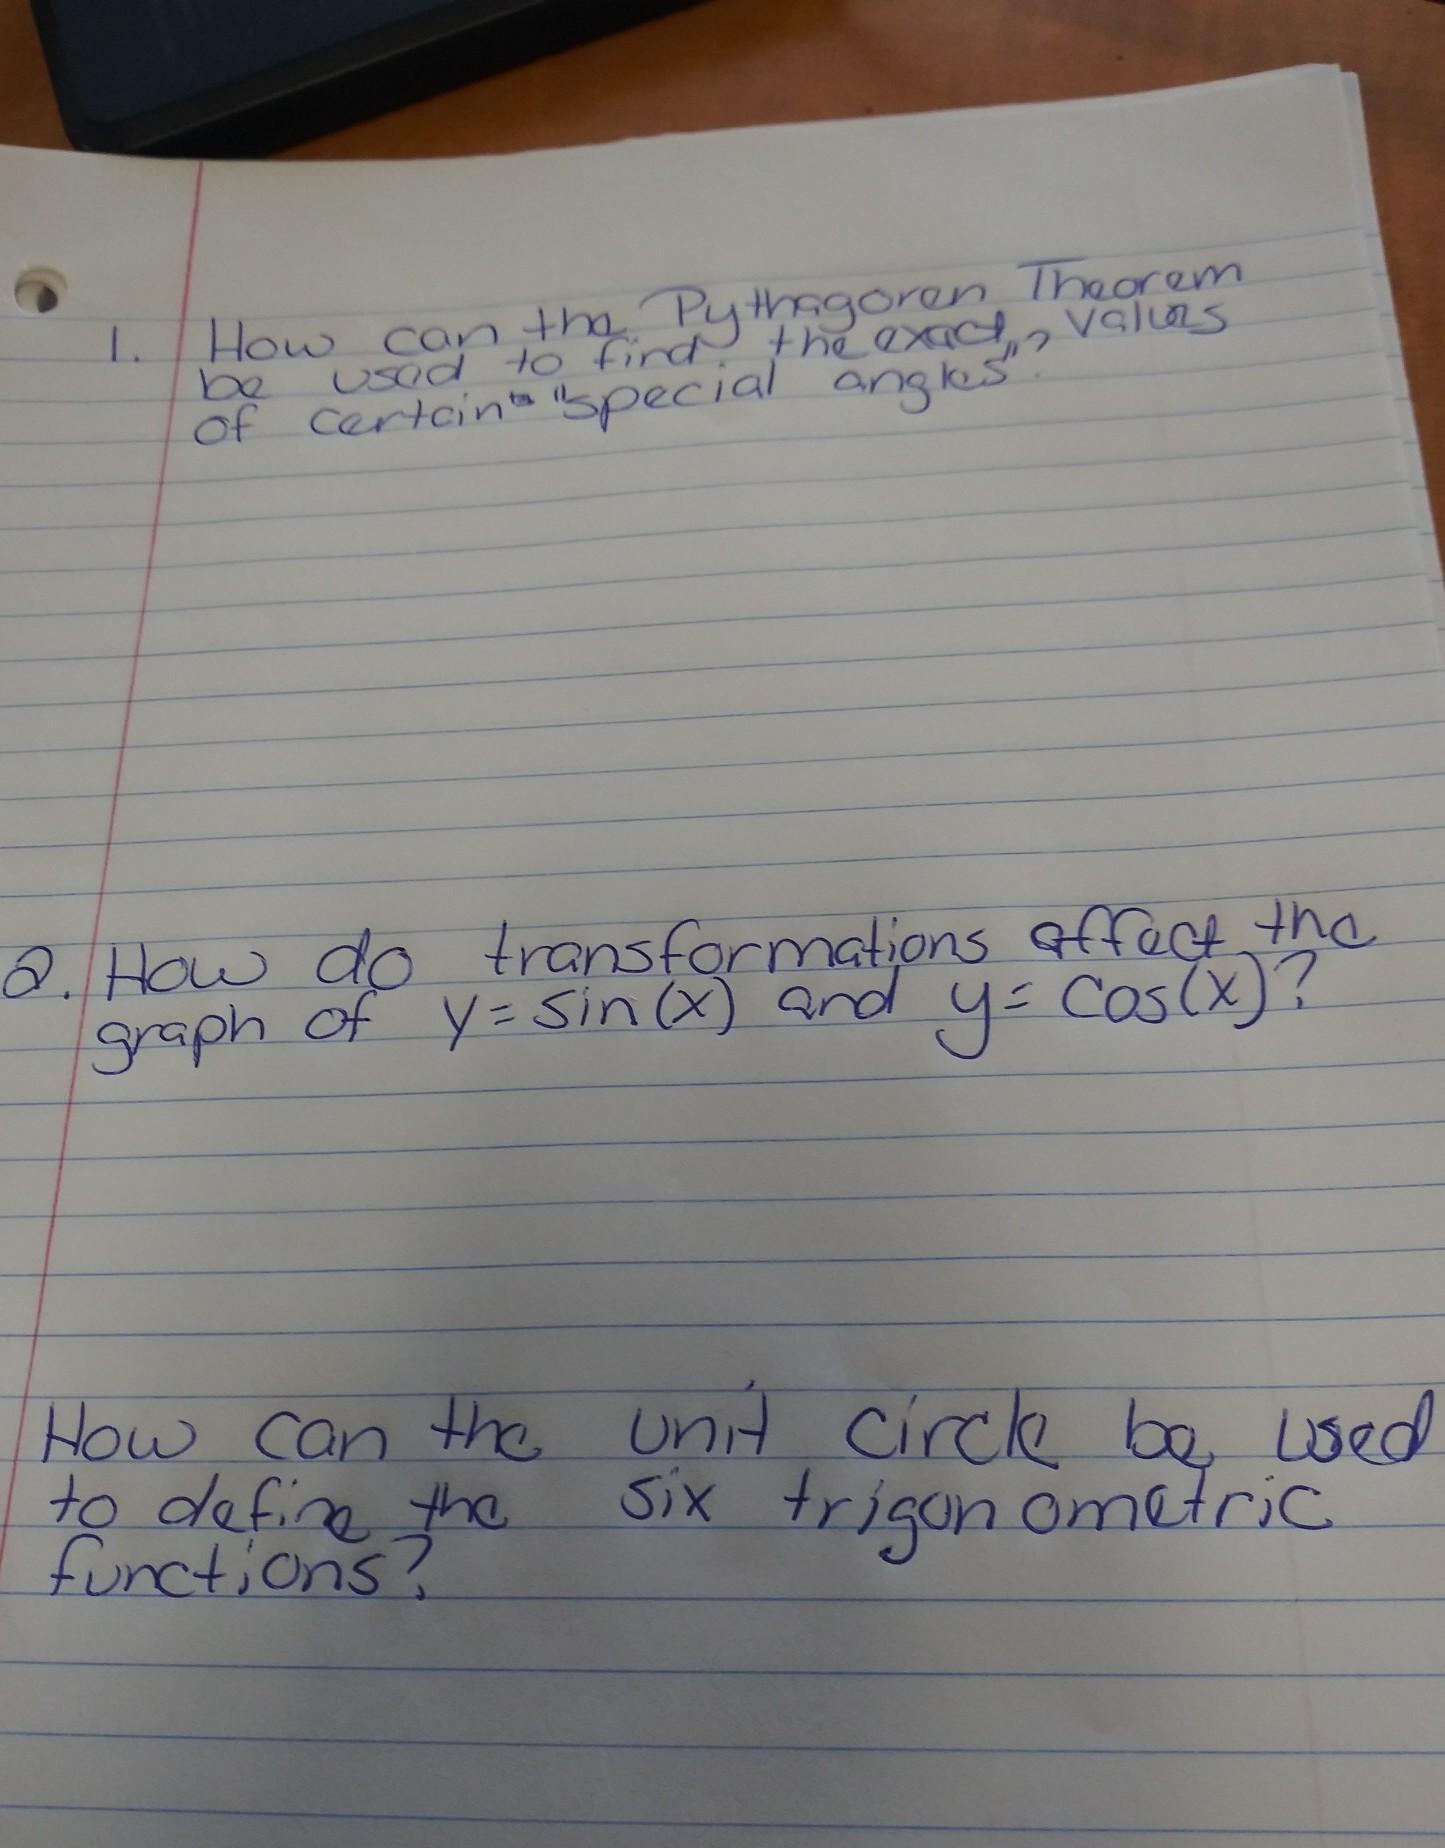 1. How can the Pythagoren Theorem
be used to find the exact values
of certain "special angles"?
2. How do transformations affect the
graph of y = sin(x) and y = cos(x)?
How can the unit circle be used
to define the six trigonometric
functions?